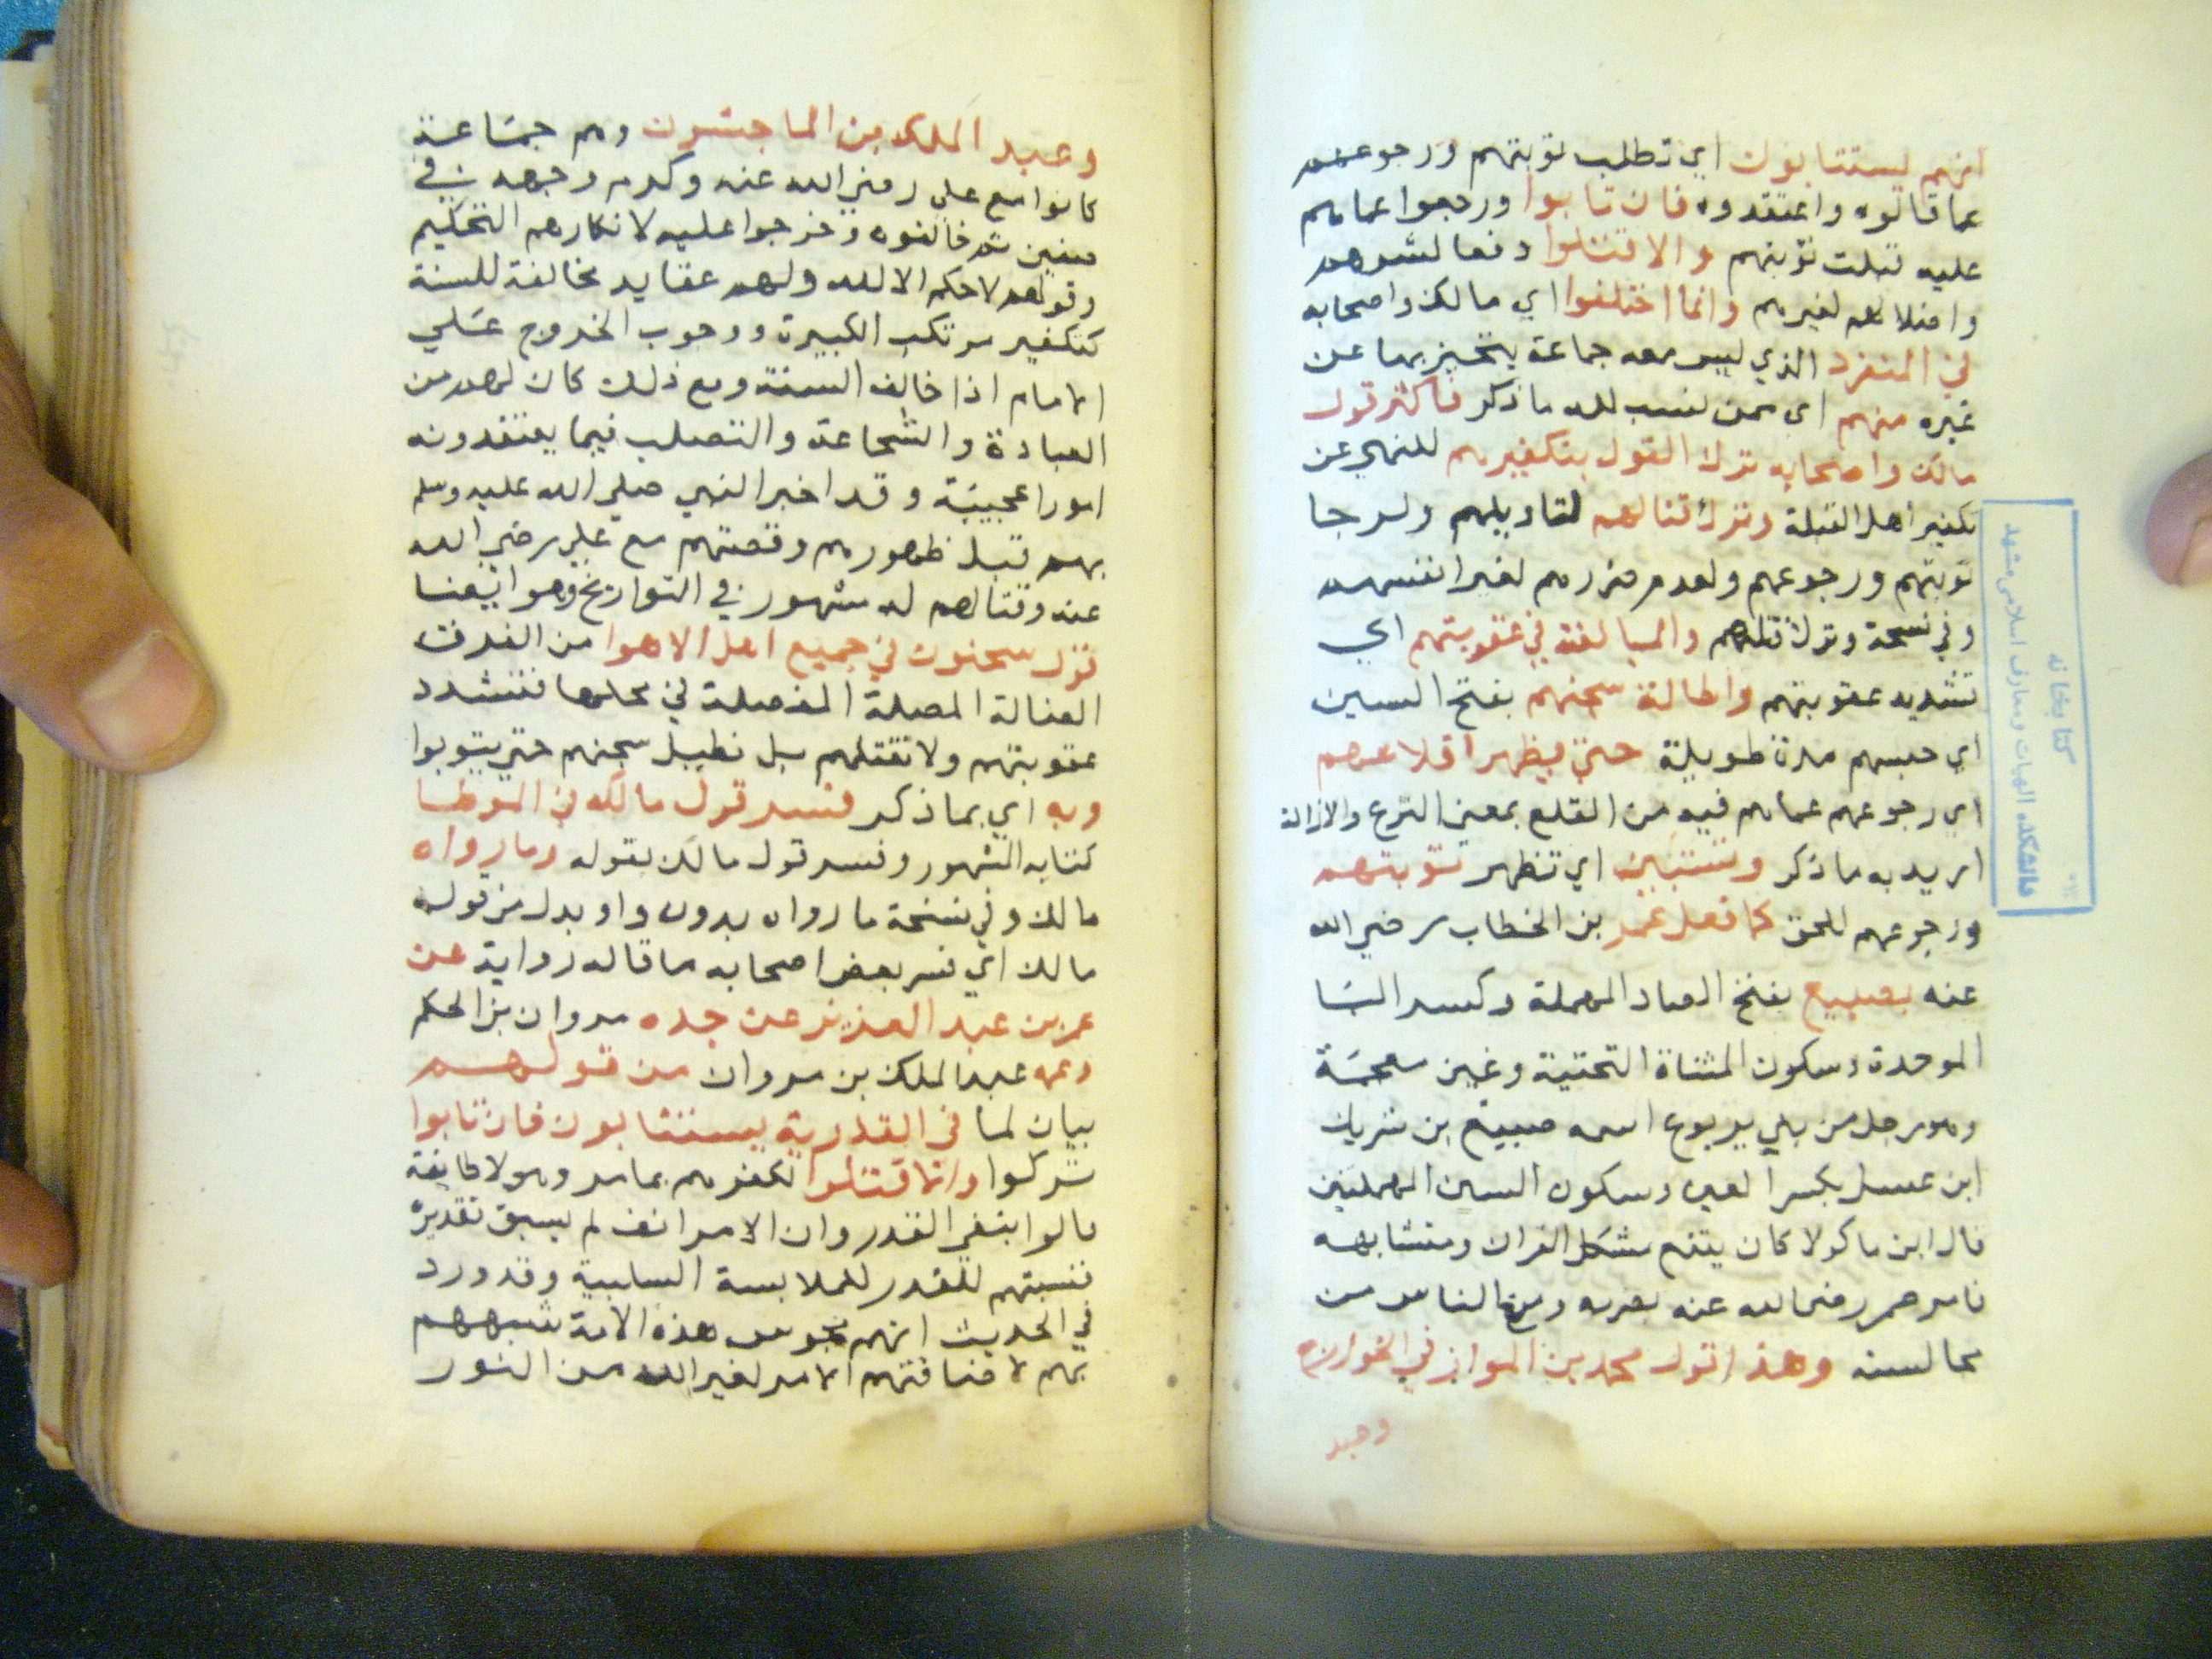 انهم يستتابون اي تطلب توبتهم ورجوعهم
عما قالوه واعتقدوه فان تابوا ورجعوا عما هم
عليه قبلت توبتهم والا قتلوا دفعا لشرهم
واضلالهم لغيرهم وانما اختلفوا اي مالك واصحابه
في المنفرد الذي ليس معه جماعة يتحيز بها عن
غيره منهم اي ممن نسب لله ما ذكر فاكثر قول
مالك واصحابه ترك القول بتكفيرهم للنهي عن
تكفير اهل القبلة وترك قتالهم لتاويلهم ولرجا
توبتهم ورجوعهم ولعدم ضررهم لغير انفسهم
وفي نسخة وترك قتلهم والمبالغة في عقوبتهم اي
تشديد عقوبتهم واطالة سجنهم بفتح السين
اي حبسهم مدة طويلة حتي يظهر اقلاعهم
اي رجوعهم عما هم فيه من القلع بمعني النزع والازالة
اريد به ما ذكر وتستبين اي تظهر توبتهم
ورجوعهم للحق كما فعل عمر بن الخطاب رضي الله
عنه بصبيغ بفتح الصاد المهملة وكسر البا
الموحدة وسكون المثناة التحتية وغين معجمة
وهو رجل من بني يربوع اسمه صبيغ بن شريك
ابن عسل بكسر العين وسكون السين المهملتين
قال ابن ماكولا كان يتتبع مشكل القران ومتشابهه
فامر عمر رضي الله عنه بضربه ومنع الناس من
مجالسته وهذا قول محمد بن المواز في الخوارج
وعبد
كتابخانه
دانشكده الهيات ومعارف اسلامى مشهد
وعبد الملك بن الماجشون وهم جماعة
كانوا مع علي رضي الله عنه وكرم وجهه في
صفين ثم خالفوه وخرجوا عليه لانكارهم التحكيم
وقولهم لا حكم الا لله ولهم عقايد مخالفة للسنة
كتكفير مرتكب الكبيرة ووجوب الخروج علي
الامام اذا خالف السنة ومع ذلك كان لهم من
العبادة والشجاعة والتصلب فيما يعتقدونه
امورا عجيبة وقد اخبر النبي صلي الله عليه وسلم
بهم قبل ظهورهم وقصتهم مع علي رضي الله
عنه وقتالهم له مشهور في التواريخ وهو ايضا
قول سحنون في جميع اهل الاهوا من الفرق
الضالة المضلة المفصلة في محلها فنشدد
عقوبتهم ولا نقتلهم بل نطيل سجنهم حتي يتوبوا
وبه اي بما ذكر فسر قول مالك في الموطا
كتابه المشهور وفسر قول مالك بقوله وما رواه
مالك وفي نسخة ما رواه بدون واو بدل من قوله
مالك اي فسر بعض اصحابه ما قاله رواية عن
عمر بن عبد العزيز عن جده مروان بن الحكم
وعمه عبد الملك بن مروان من قولهم
بيان لما في القدرية يستتابون فان تابوا
تركوا والا قتلوا لكفرهم بما مر وهولا طايفة
قالوا بنفي القدر وان الامر انف لم يسبق تقديره
فنسبتهم للقدر للملابسة السلبية وقد ورد
في الحديث انهم مجوس هذه الامة شبههم
بهم لاضافتهم الامر لغير الله من النور